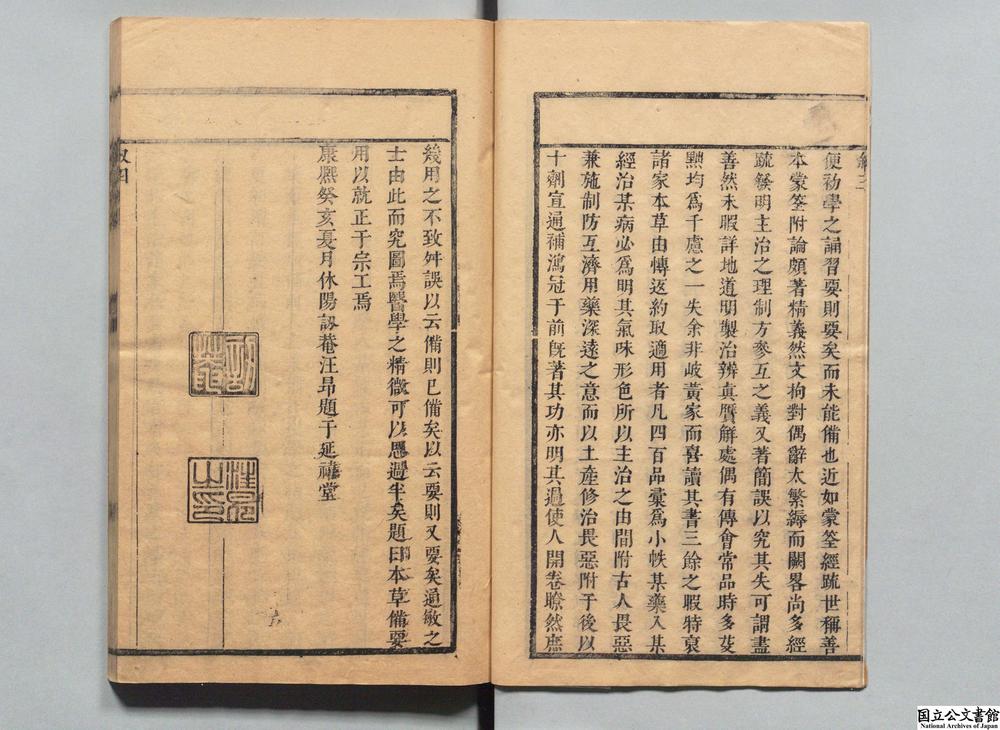 敘三
便初學之誦習要則要矣而未能備也近如蒙筌經疏世稱善
本蒙筌附論頗著精義然文拘對偶辭太繁縟而闕畧尚多經
疏發明主治之理制方參互之義又著簡誤以究其失可謂盡
善然未暇詳地道明製治辨真贗解處偶有傅會常品時多芟
黜均爲千慮之一失余非岐黃家而喜讀其書三餘之暇特裒
諸家本草由博返約取適用者凡四百品彙爲小帙某藥入某
經治某病必爲明其氣味形色所以主治之由間附古人畏惡
兼施制防互濟用藥深遠之意而以土產修治畏惡附于後以
十劑宣通補瀉冠于前旣著其功亦明其過使人開卷瞭然庶
幾用之不致舛誤以云備則已備矣以云要則又要矣通敏之
士由此而究圖焉醫學之精微可以思過半矣題曰本草備要
用以就正于宗工焉
康熙癸亥夏月休陽訒菴汪昂題于延禧堂
訒菴
汪昂之印
敘四
国立公文書館
National Archives of Japan